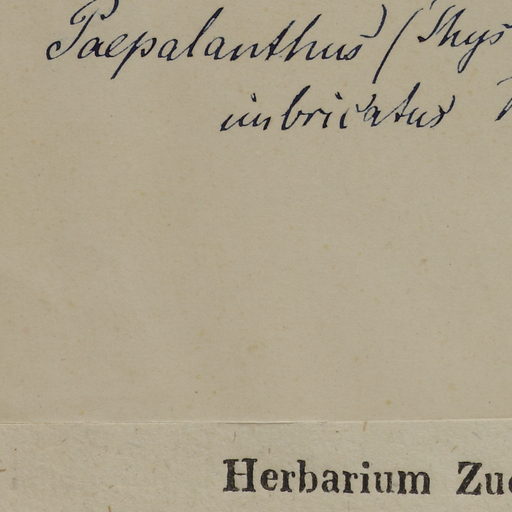 Paepalanthus (Thys
imbricatus
Herbarium Zuc